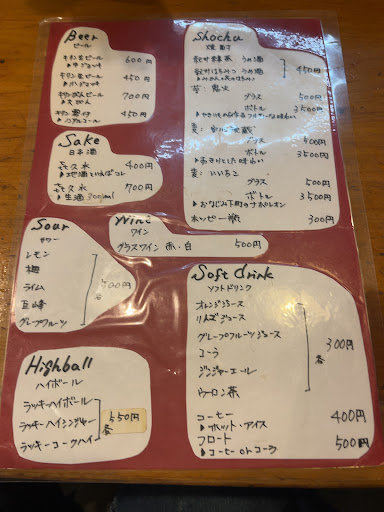 Beer
ビール
キリン生ビール 600円
▶中ジョッキ
キリン生ビール 450円
キリンビール 700円
▶大びん
450円
▶ノンアルコール
Sake
日本酒
喜久水 400円
▶地酒といえばコレ
喜久水 700円
▶生酒 300ml
Sour
サワー
レモン
梅
ライム
巨峰
グレープフルーツ
各 500円
Wine
ワイン
グラスワイン 赤・白 500円
Highball
ハイボール
ラッキーハイボール
ラッキーハイジンジャー
ラッキーコークハイ
各 550円
Shochu
焼酎
うめ酒
はちみつ うめ酒
450円
芋: 黒火
グラス 500円
ボトル 3500円
麦:
グラス 500円
ボトル 3500円
▶あっさりとした味わい
麦: いいちこ
グラス 500円
ボトル 3500円
▶おなじみ下町のナポレオン
ホッピー 300円
Soft drink
ソフトドリンク
オレンジジュース
りんごジュース
グレープフルーツジュース
コーラ
ジンジャーエール
ウーロン茶
各 300円
コーヒー 400円
▶ホット・アイス
フロート 500円
▶コーヒー or コーラ